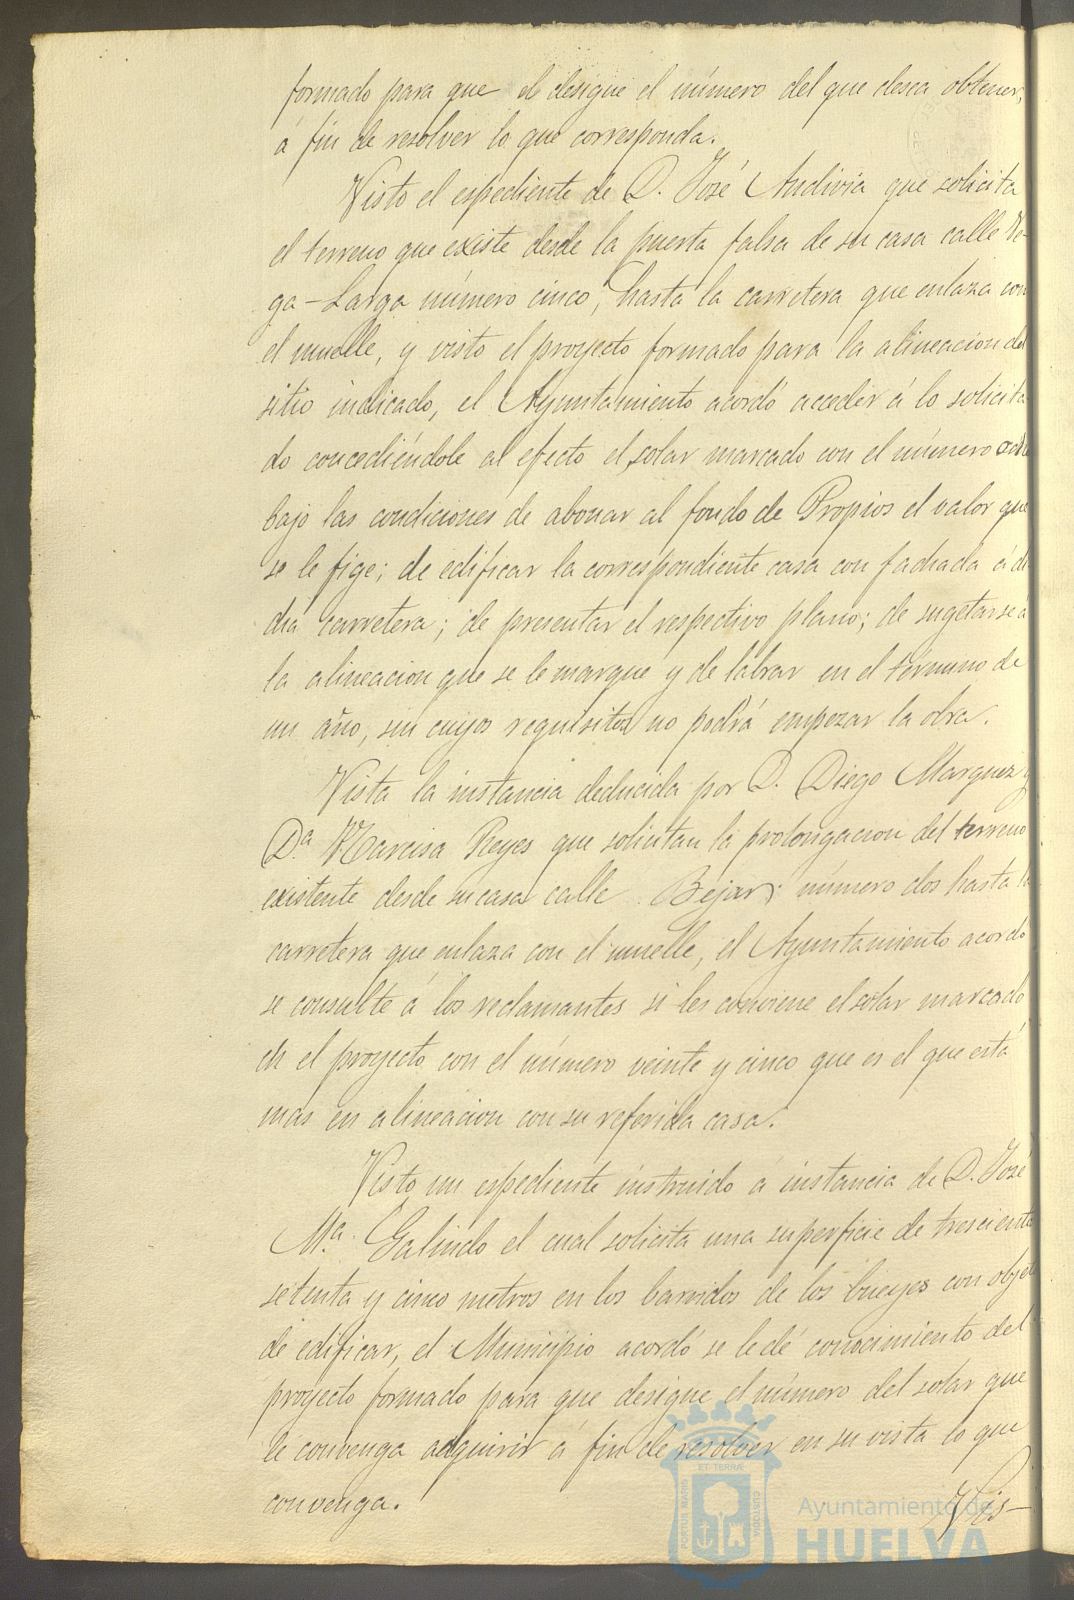 formado para que el designe el número del que desea obtener,
á fin de resolver lo que corresponda.
Visto el espediente de D. José Andivia que solicita
el terreno que existe desde la puerta falsa de su casa calle Ve-
ga-Larga número cinco, hasta la carretera que enlaza con
el muelle, y visto el proyecto formado para la alineacion del
sitio indicado, el Ayuntamiento acordó acceder á lo solicita
do concediéndole al efecto el solar marcado con el número
bajo las condiciones de abonar al fondo de Propios el valor que
se le fige; de edificar la correspondiente casa con fachada á di
cha carretera; de presentar el respectivo plano; de sugetarse á
la alineacion que se le marque y de labrar en el término de
un año, sin cuyos requisitos no podrá empezar la obra.
Vista la instancia deducida por D. Diego Marquez y
D.ª Narcisa Reyes que solicitan la prolongacion del terreno
existente desde su casa calle Bejar número dos hasta la
carretera que enlaza con el muelle, el Ayuntamiento acordó
se consulte á los reclamantes si les conviene el solar marcado
en el proyecto con el número veinte y cinco que es el que está
mas en alineacion con su referida casa.
Visto un espediente instruido á instancia de D. José
M.ª Galindo el cual solicita una superficie de trescientos
setenta y cinco metros en los barridos de los bueyes con objeto
de edificar, el Municipio acordó se le dé conocimiento del
proyecto formado para que designe el número del solar que
le convenga adquirir á fin de resolver en su vista lo que
convenga.
Vis-
PORTUS MARIS
ET TERRÆ
CUSTODIA
Ayuntamiento de
HUELVA